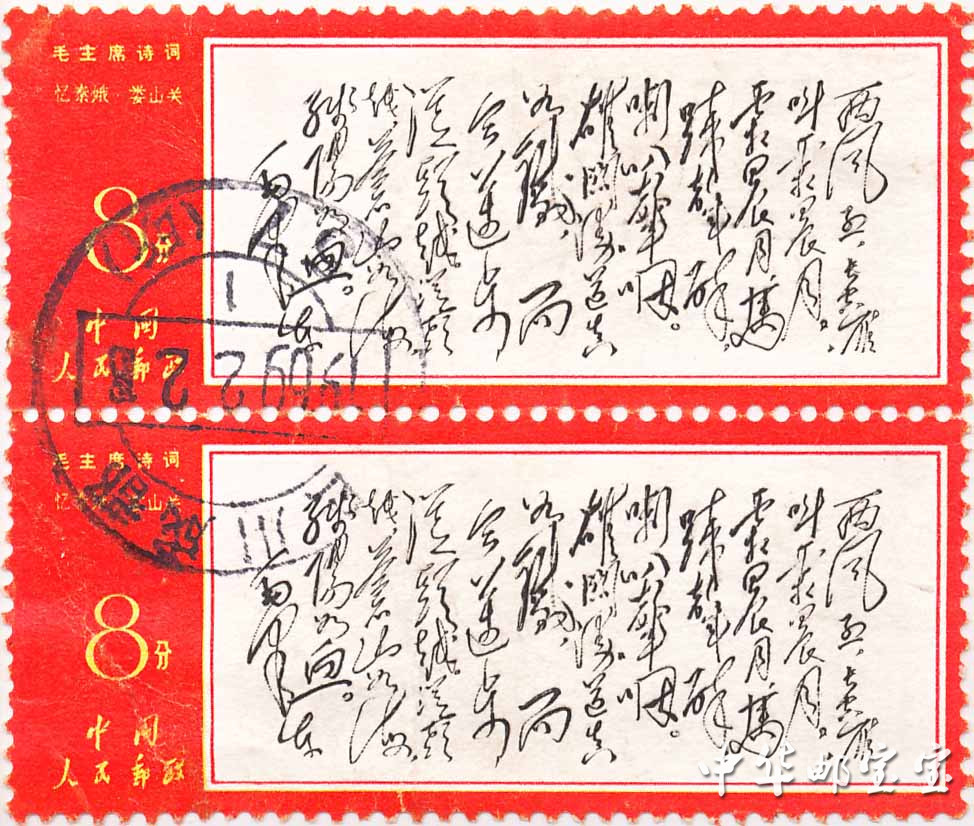 毛主席诗词
忆秦娥·娄山关
8分
中国
人民邮政
西风烈，长空雁
叫霜晨月。
霜晨月，马
蹄声碎，
喇叭声咽。
雄关漫道真
如铁，而
今迈步
从头越。从头
越，苍山如海，
残阳如血。
毛泽东
毛主席诗词
忆秦娥·娄山关
8分
中国
人民邮政
西风烈，长空雁
叫霜晨月。
霜晨月，马
蹄声碎，
喇叭声咽。
雄关漫道真
如铁，而
今迈步
从头越。从头
越，苍山如海，
残阳如血。
毛泽东
中华邮宝宝